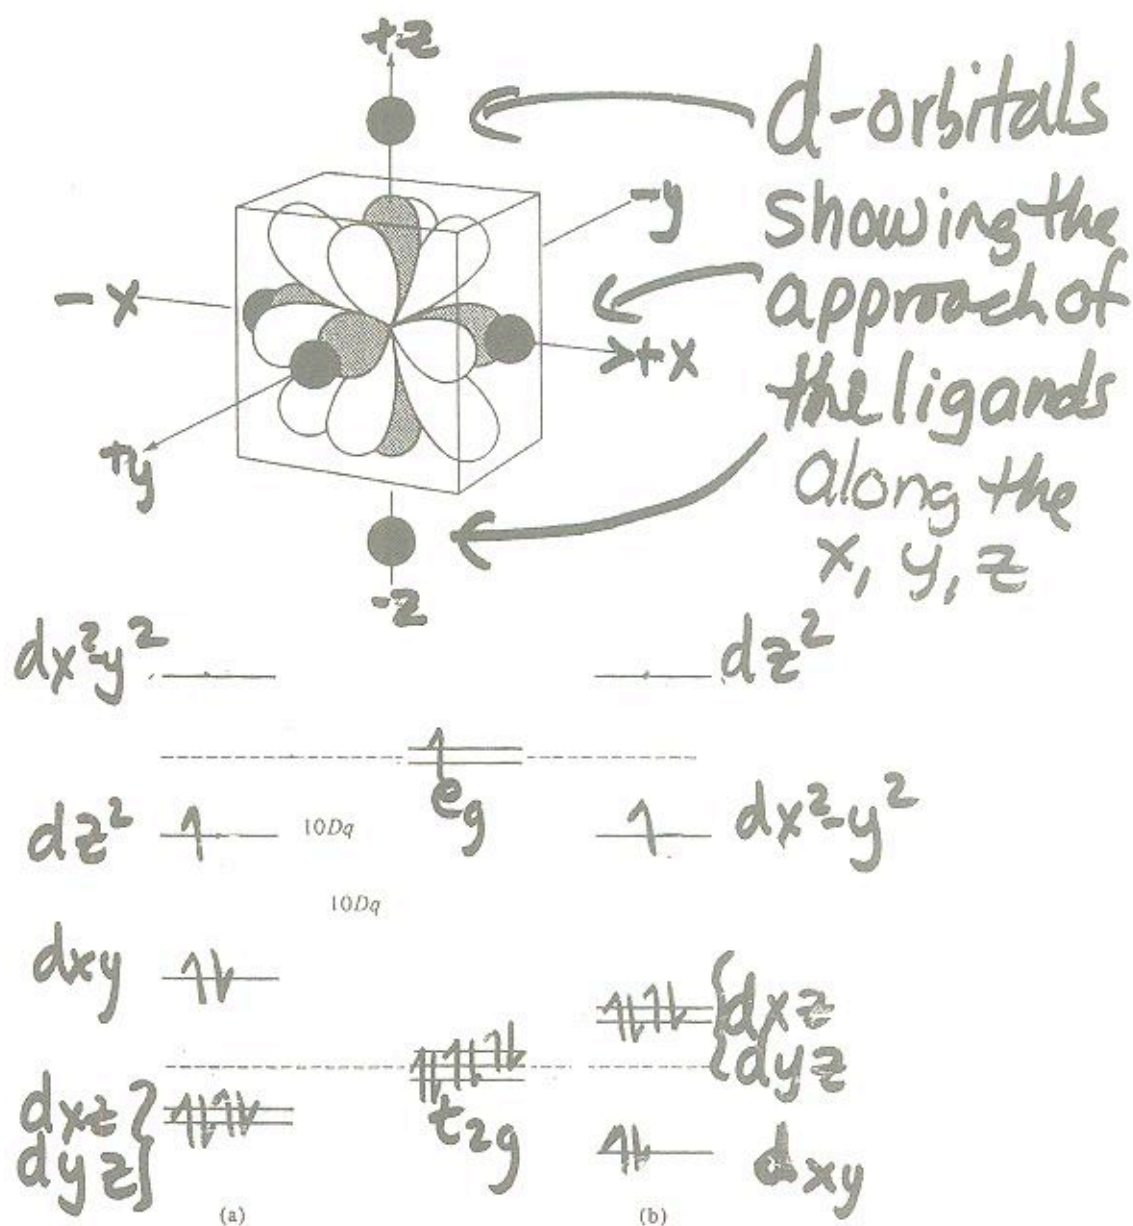 +z
d-orbitals
showing the
approach of
the ligands
along the
x, y, z
-y
-x
+x
+y
-z
dx²-y²
dz²
eg
dz²
10Dq
dx²-y²
10Dq
dxy
dxz
dyz
t2g
dxz
dyz
dxy
(a)
(b)